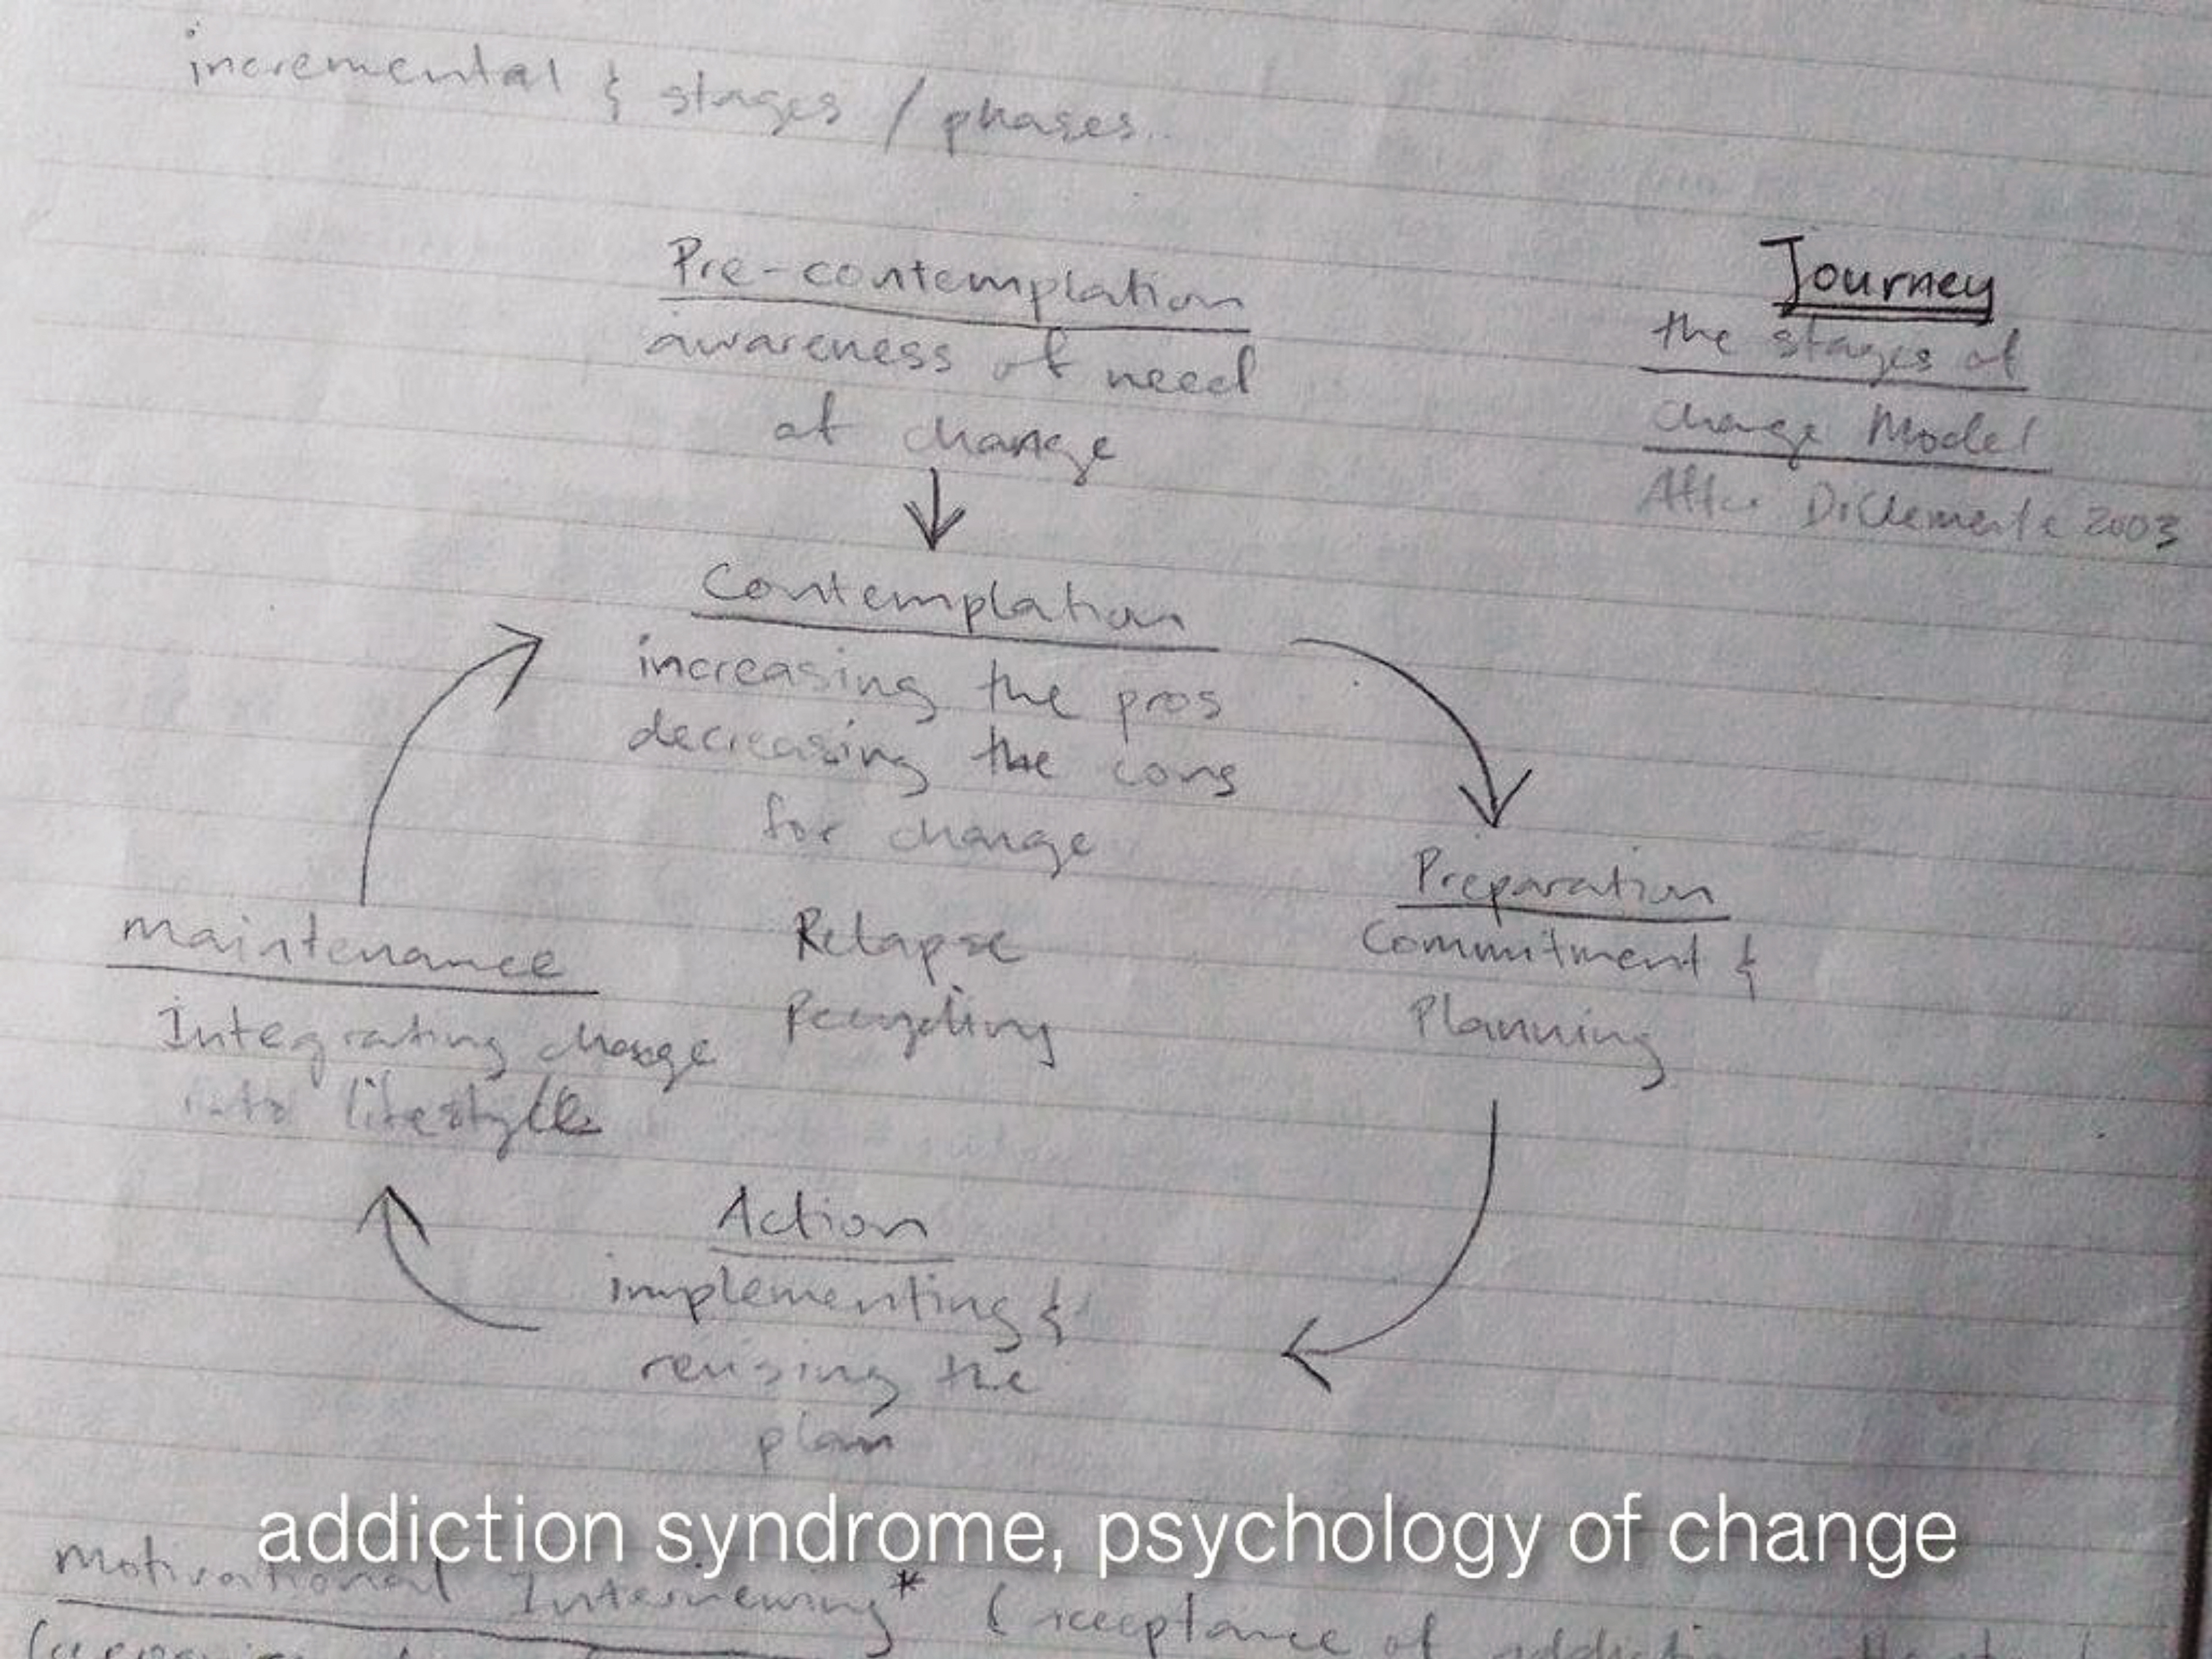 incremental & stages / phases..
Pre-contemplation
awareness of need
of change
Journey
the stages of
change Model
After DiClemente 2003
Contemplation
increasing the pros
decreasing the cons
for change
Preparation
Commitment &
Planning
Relapse
Recycling
maintenance
Integrating change
into lifestyle
Action
implementing &
revising the
plan
addiction syndrome, psychology of change
Motivational Interviewing* (acceptance of